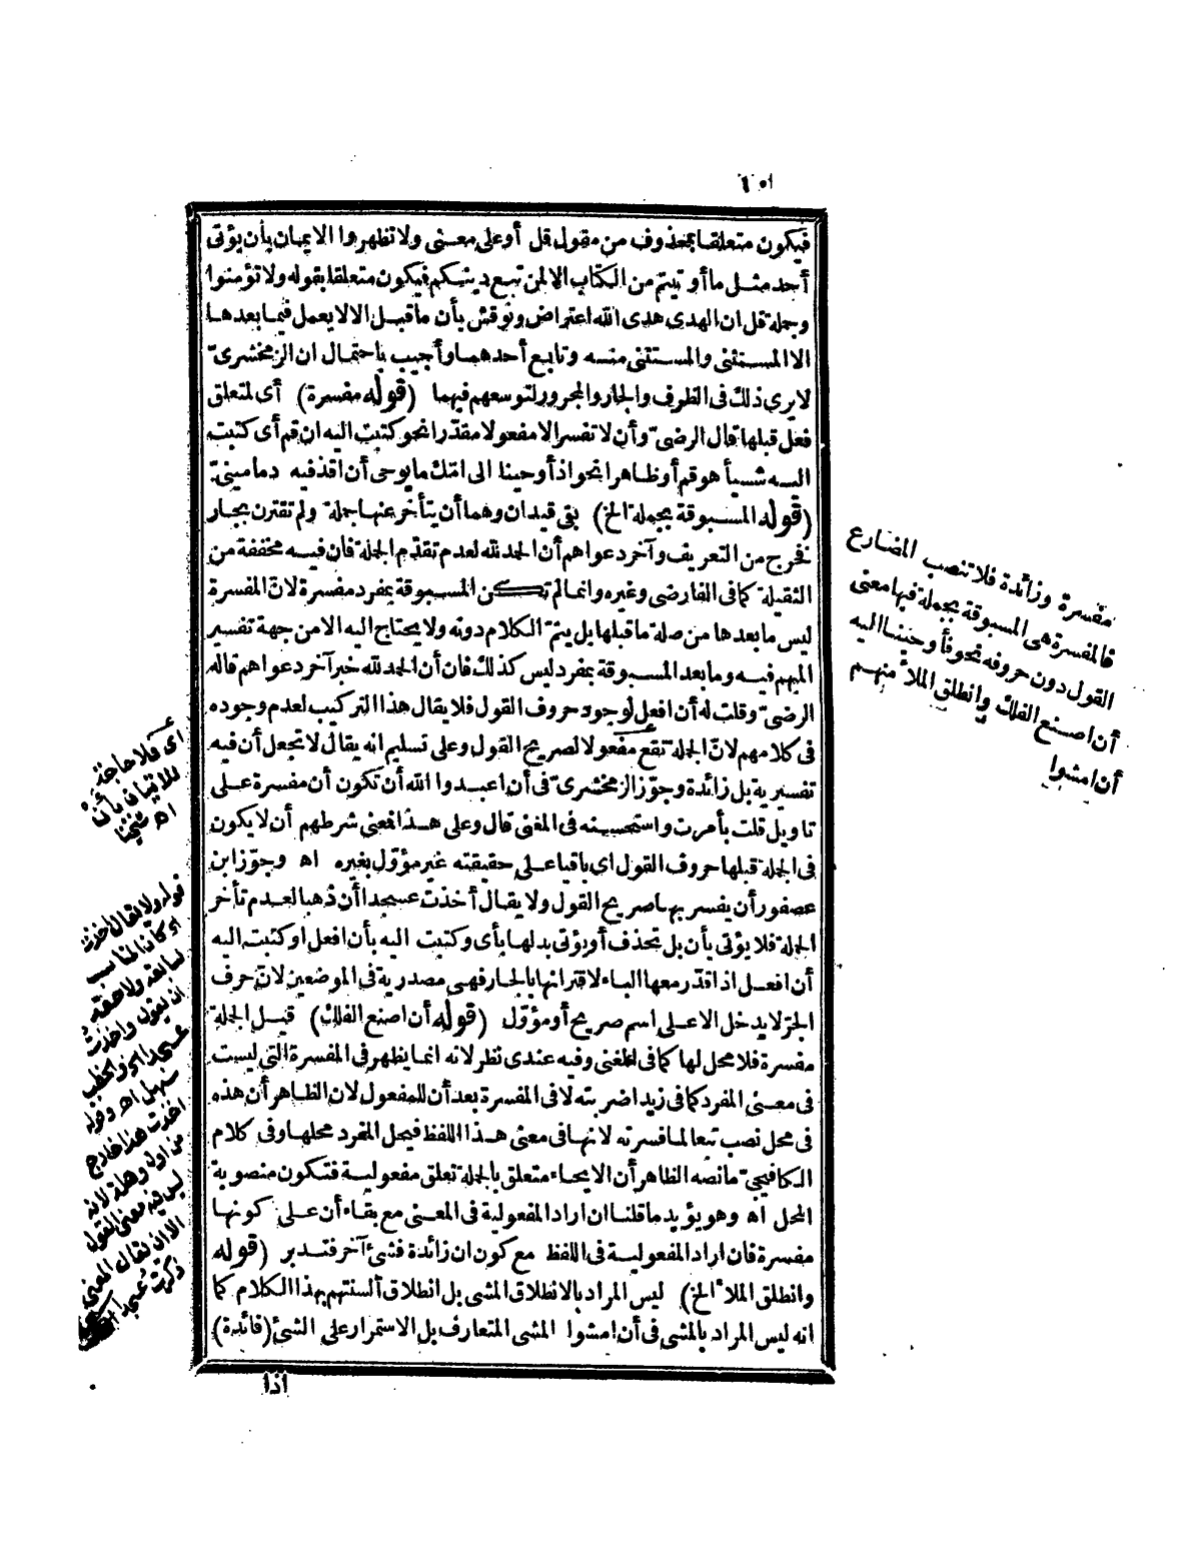 فيكون متعلقا بمحذوف من مقول قل أو على معنى ولا تظهروا الايمان بأن يؤتى
أحد مثل ما أوتيتم من الكتاب الا لمن تبع دينكم فيكون متعلقا بقوله ولا تؤمنوا
وجملة قل ان الهدى هدى الله اعتراض ونوقش بأن ما قبل الا لا يعمل فيما بعدها
الا المستثنى والمستثنى منه وتابع أحدهما وأجيب باحتمال ان الزمخشرىّ
لا يرى ذلك فى الظرف والجار والمجرور لتوسعهم فيهما (قوله مفسرة) أى لمتعلق
فعل قبلها قال الرضىّ وأن لا تفسر الا مفعولا مقدّرا نحو كتبت اليه ان قم أى كتبت
اليه شيأ هو قم أو ظاهرا نحو اذ أوحينا الى امّك ما يوحى أن اقذفيه دمامينىّ
(قوله المسبوقة بجملة الخ) بقى قيدان وهما أن يتأخر عنها جملة ولم تقترن بجار
فخرج من التعريف وآخر دعواهم أن الحمد لله لعدم تقدّم الجملة فان فيه مخففة من
الثقيلة كما فى الفارضى وغيره وانما لم تكن المسبوقة بمفرد مفسرة لانّ المفسرة
ليس ما بعدها من صلة ما قبلها بل يتمّ الكلام دونه ولا يحتاج اليه الا من جهة تفسير
المبهم فيه وما بعد المسبوقة بمفرد ليس كذلك فان أن الحمد لله خبر آخر دعواهم قاله
الرضىّ وقلت له أن افعل لوجود حروف القول فلا يقال هذا التركيب لعدم وجوده
فى كلامهم لانّ الجملة تقع مفعولا لصريح القول وعلى تسليم انه يقال لا تجعل أن فيه
تفسيرية بل زائدة وجوّز الزمخشرىّ فى أن اعبدوا الله أن تكون أن مفسرة على
تاويل قلت بأمرت واستحسنه فى المغنى قال وعلى هذا فمعنى شرطهم أن لا يكون
فى الجملة قبلها حروف القول اى باقيا على حقيقته غير مؤوّل بغيره اه وجوّز ابن
عصفور أن يفسر بها صريح القول ولا يقال أخذت عسجدا أن ذهبا لعدم تأخر
الجملة فلا يؤتى بأن بل تحذف أو يؤتى بدلها بأى وكتبت اليه بأن افعل او كتبت اليه
أن افعل اذا قدّر معها الباء لاقترانها بالجار فهى مصدرية فى الموضعين لانّ حرف
الجرّ لا يدخل الا على اسم صريح أو مؤوّل (قوله أن اصنع الفلك) قيل الجملة
مفسرة فلا محل لها كما فى المغنى وفيه عندى نظر لانه انما يظهر فى المفسرة التى ليست
فى معنى المفرد كما فى زيدا ضربته لا فى المفسرة بعد أن للمفعول لان الظاهر أن هذه
فى محل نصب تبعا لما فسرته لانها فى معنى هذا اللفظ فيحل المفرد محلها وفى كلام
الكافيجىّ ما نصه الظاهر أن الايحاء متعلق بالجملة تعلق مفعولية فتكون منصوبة
المحل اه وهو يؤيد ما قلنا ان اراد المفعولية فى المعنى مع بقاء أن على كونها
مفسرة فان اراد المفعولية فى اللفظ مع كون ان زائدة فشئ آخر فتدبر (قوله
وانطلق الملأ الخ) ليس المراد بالانطلاق المشى بل انطلاق ألسنتهم بهذا الكلام كما
انه ليس المراد بالمشى فى أن امشوا المشى المتعارف بل الاستمرار على الشئ (فائدة)
اذا
مفسرة وزائدة فلا تنصب المضارع
فالمفسرة هى المسبوقة بجملة فيها معنى
القول دون حروفه نحو فأوحينا اليه
أن اصنع الفلك وانطلق الملأ منهم
أن امشوا
اى فلا حاجة
للاتيان بأن
اه شيخنا
قوله ولا يقال اخذت
ان يقول واخذت
اخذت هذا خارج
من اول وهلة لانه
ليس فيه معنى القول
الا ان يقال المعنى